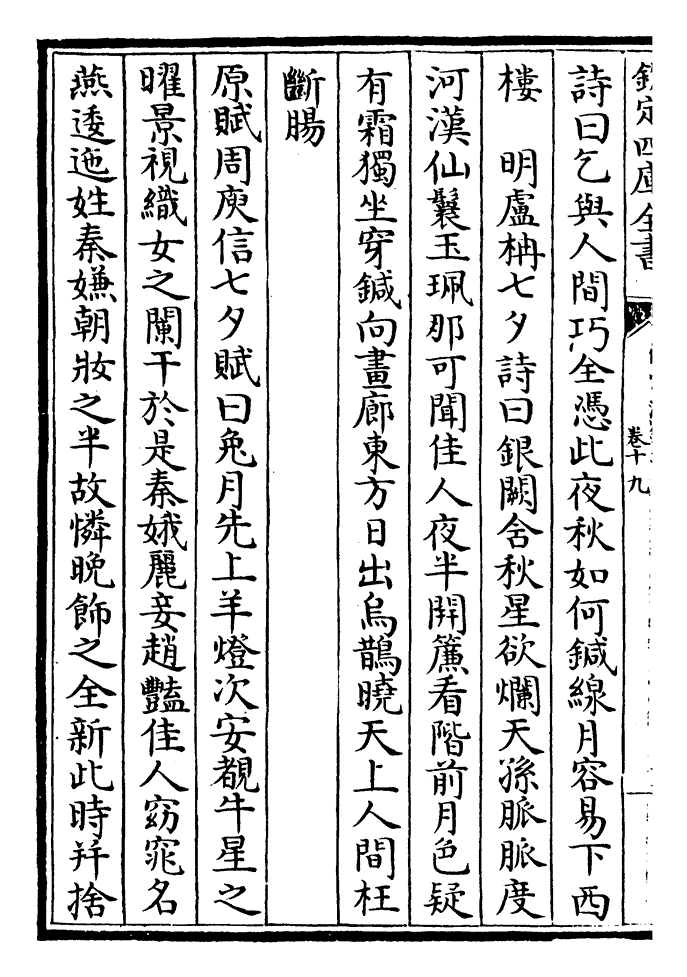 欽定四庫全書
卷十九
詩曰乞與人間巧全憑此夜秋如何鍼線月容易下西
樓　明盧柟七夕詩曰銀闕含秋星欲爛天孫脈脈度
河漢仙鬟玉珮那可聞佳人夜半開簾看階前月色疑
有霜獨坐穿鍼向畫廊東方日出烏鵲曉天上人間枉
斷腸
原賦周庾信七夕賦曰兔月先上羊燈次安覩牛星之
曜景視織女之闌干於是秦娥麗妾趙豔佳人窈窕名
燕逶迤姓秦嫌朝妝之半故憐晚飾之全新此時并捨